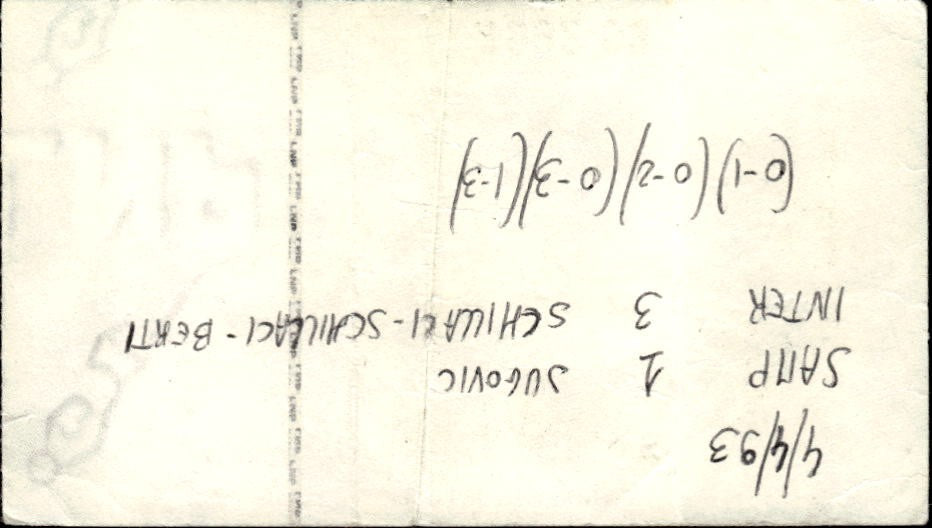 4/4/93
SAMP 1 JUGOVIC
INTER 3 SCHILLACI - SCHILLACI - BERTI
(0-1) (0-2) (0-3) (1-3)